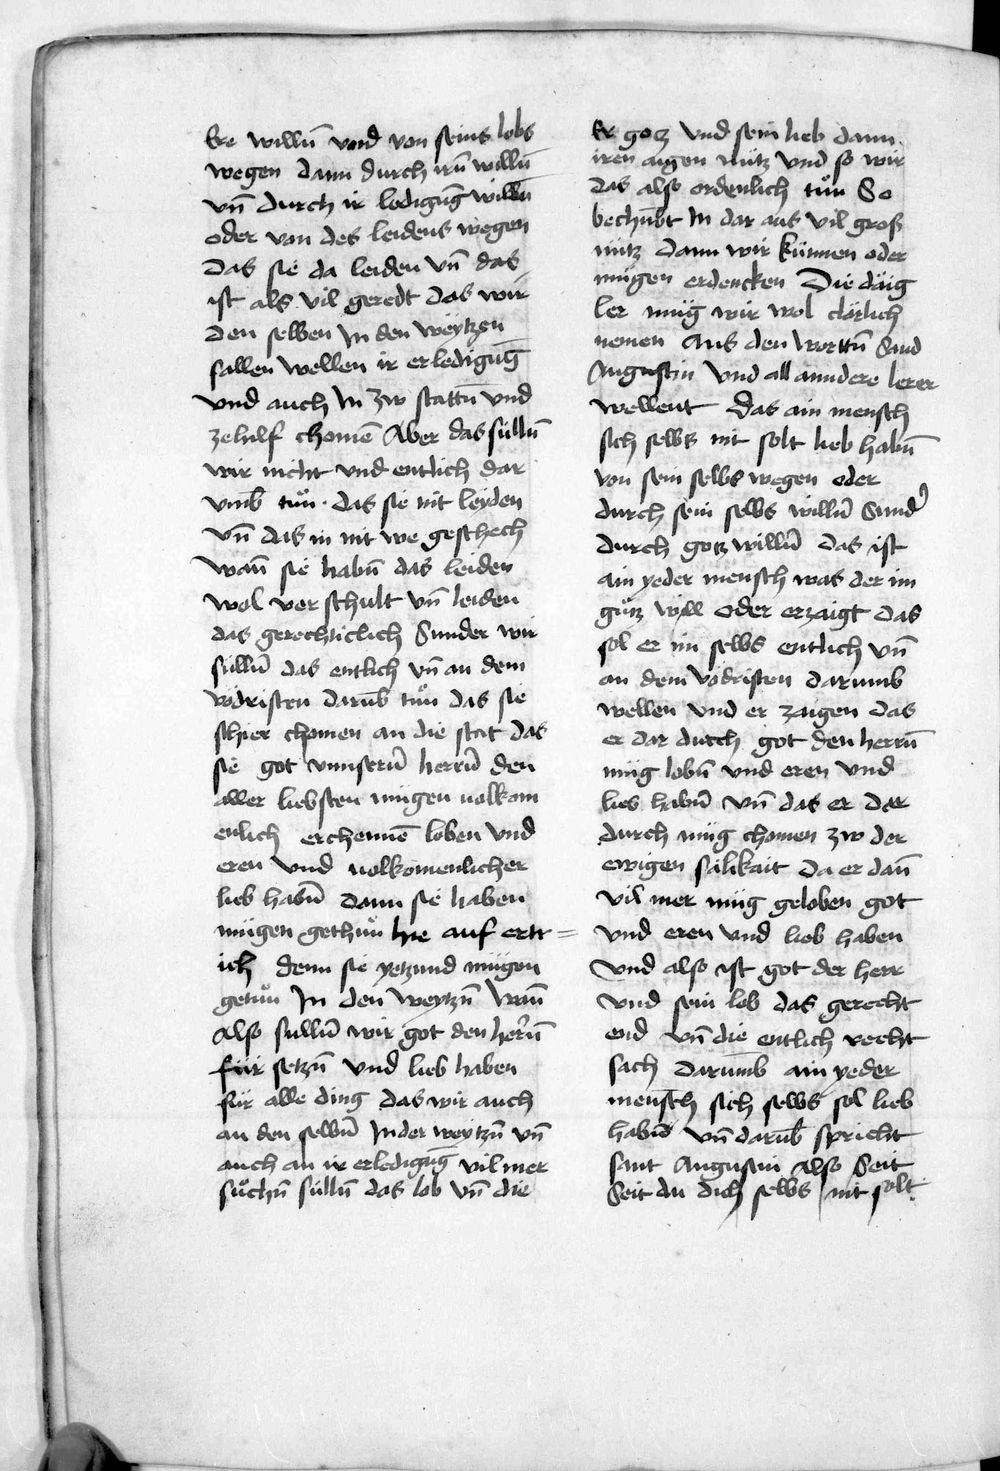 Ere willn̄ vnd von seins lobs
wegen dann durch irn̄ willn̄
vn̄ durch ir ledigūg willn̄
oder von des leidens wegen
das sie da leiden vn̄ das
ist als vil geredt das wir
den selben In den weytzen
sallen wellen ir erledigūg
vnd auch In zw stattn̄ vnd
zehilf chomē Aber das sülln̄
wir nicht vnd entlich dar
vmb̄ tuͦn · das sie nit leyden
vn̄ das in nit we geschech
wan̄ sie habn̄ das leiden
wol verschult vn̄ leiden
das gerechticlich Sunder wir
sülln̄ das entlich vn̄ an dem
vödristen darūb tuͦn das sie
schier chomen an die stat das
sie got vnnsern̄ herrn̄ den
aller liebsten mügen uolkom
enlich erchennē loben vnd
eren vnd uolkomenlicher
lieb habn̄ dann sie haben
mügen gethuͦn hie auf ertr=
ich denn sie yetzund mügen
getuͦn In den weytzn̄ wan̄
Also sulln̄ wir got den her̄n̄
für setzn̄ vnd lieb haben
für alle ding das wir auch
an den selbn̄ In der weytzn̄ vn̄
auch an ir erledigūg vil mer
suͦchn̄ sülln̄ das lob vn̄ die
Er gotz vnd sein lieb dann
iren aigen nütz vnd so wir
das also ordenlich tuͦn So
bechūbt In dar aus vil gros
nütz dann wir künnen oder
mügen erdencken Die däig
ler müg wir wol clärlich
nemen Aus den wortn̄ Sand
Augustin vnd all anndere lerer
wellent Das ain mensch
sich selbs nit solt lieb habn̄
von sein selbs wegen oder
durch sein selbs willn̄ Sund̓
durch gotz willn̄ das ist
ain yeder mensch was der im
guͦtz will oder erzaigt das
sol er im selbs entlich vn̄
an dem vödristen darumb
wellen vnd er zaigen das
er dar durch got den herrn̄
müg lobn̄ vnd eren vnd
lieb habn̄ vn̄ das er dar
durch müg chomen zw der
ewigen sälikait da er dan̄
vil mer müg geloben got
vnd eren vnd lieb haben
vnd also ist got der herr
vnd sein lob das gerecht
end vn̄ die entlich recht
sach darumb ain yeder
mensch sich selbs sol lieb
habn̄ vn̄ darūb spricht
sant Augustin also Seit
Seit du dich selbs nit solt